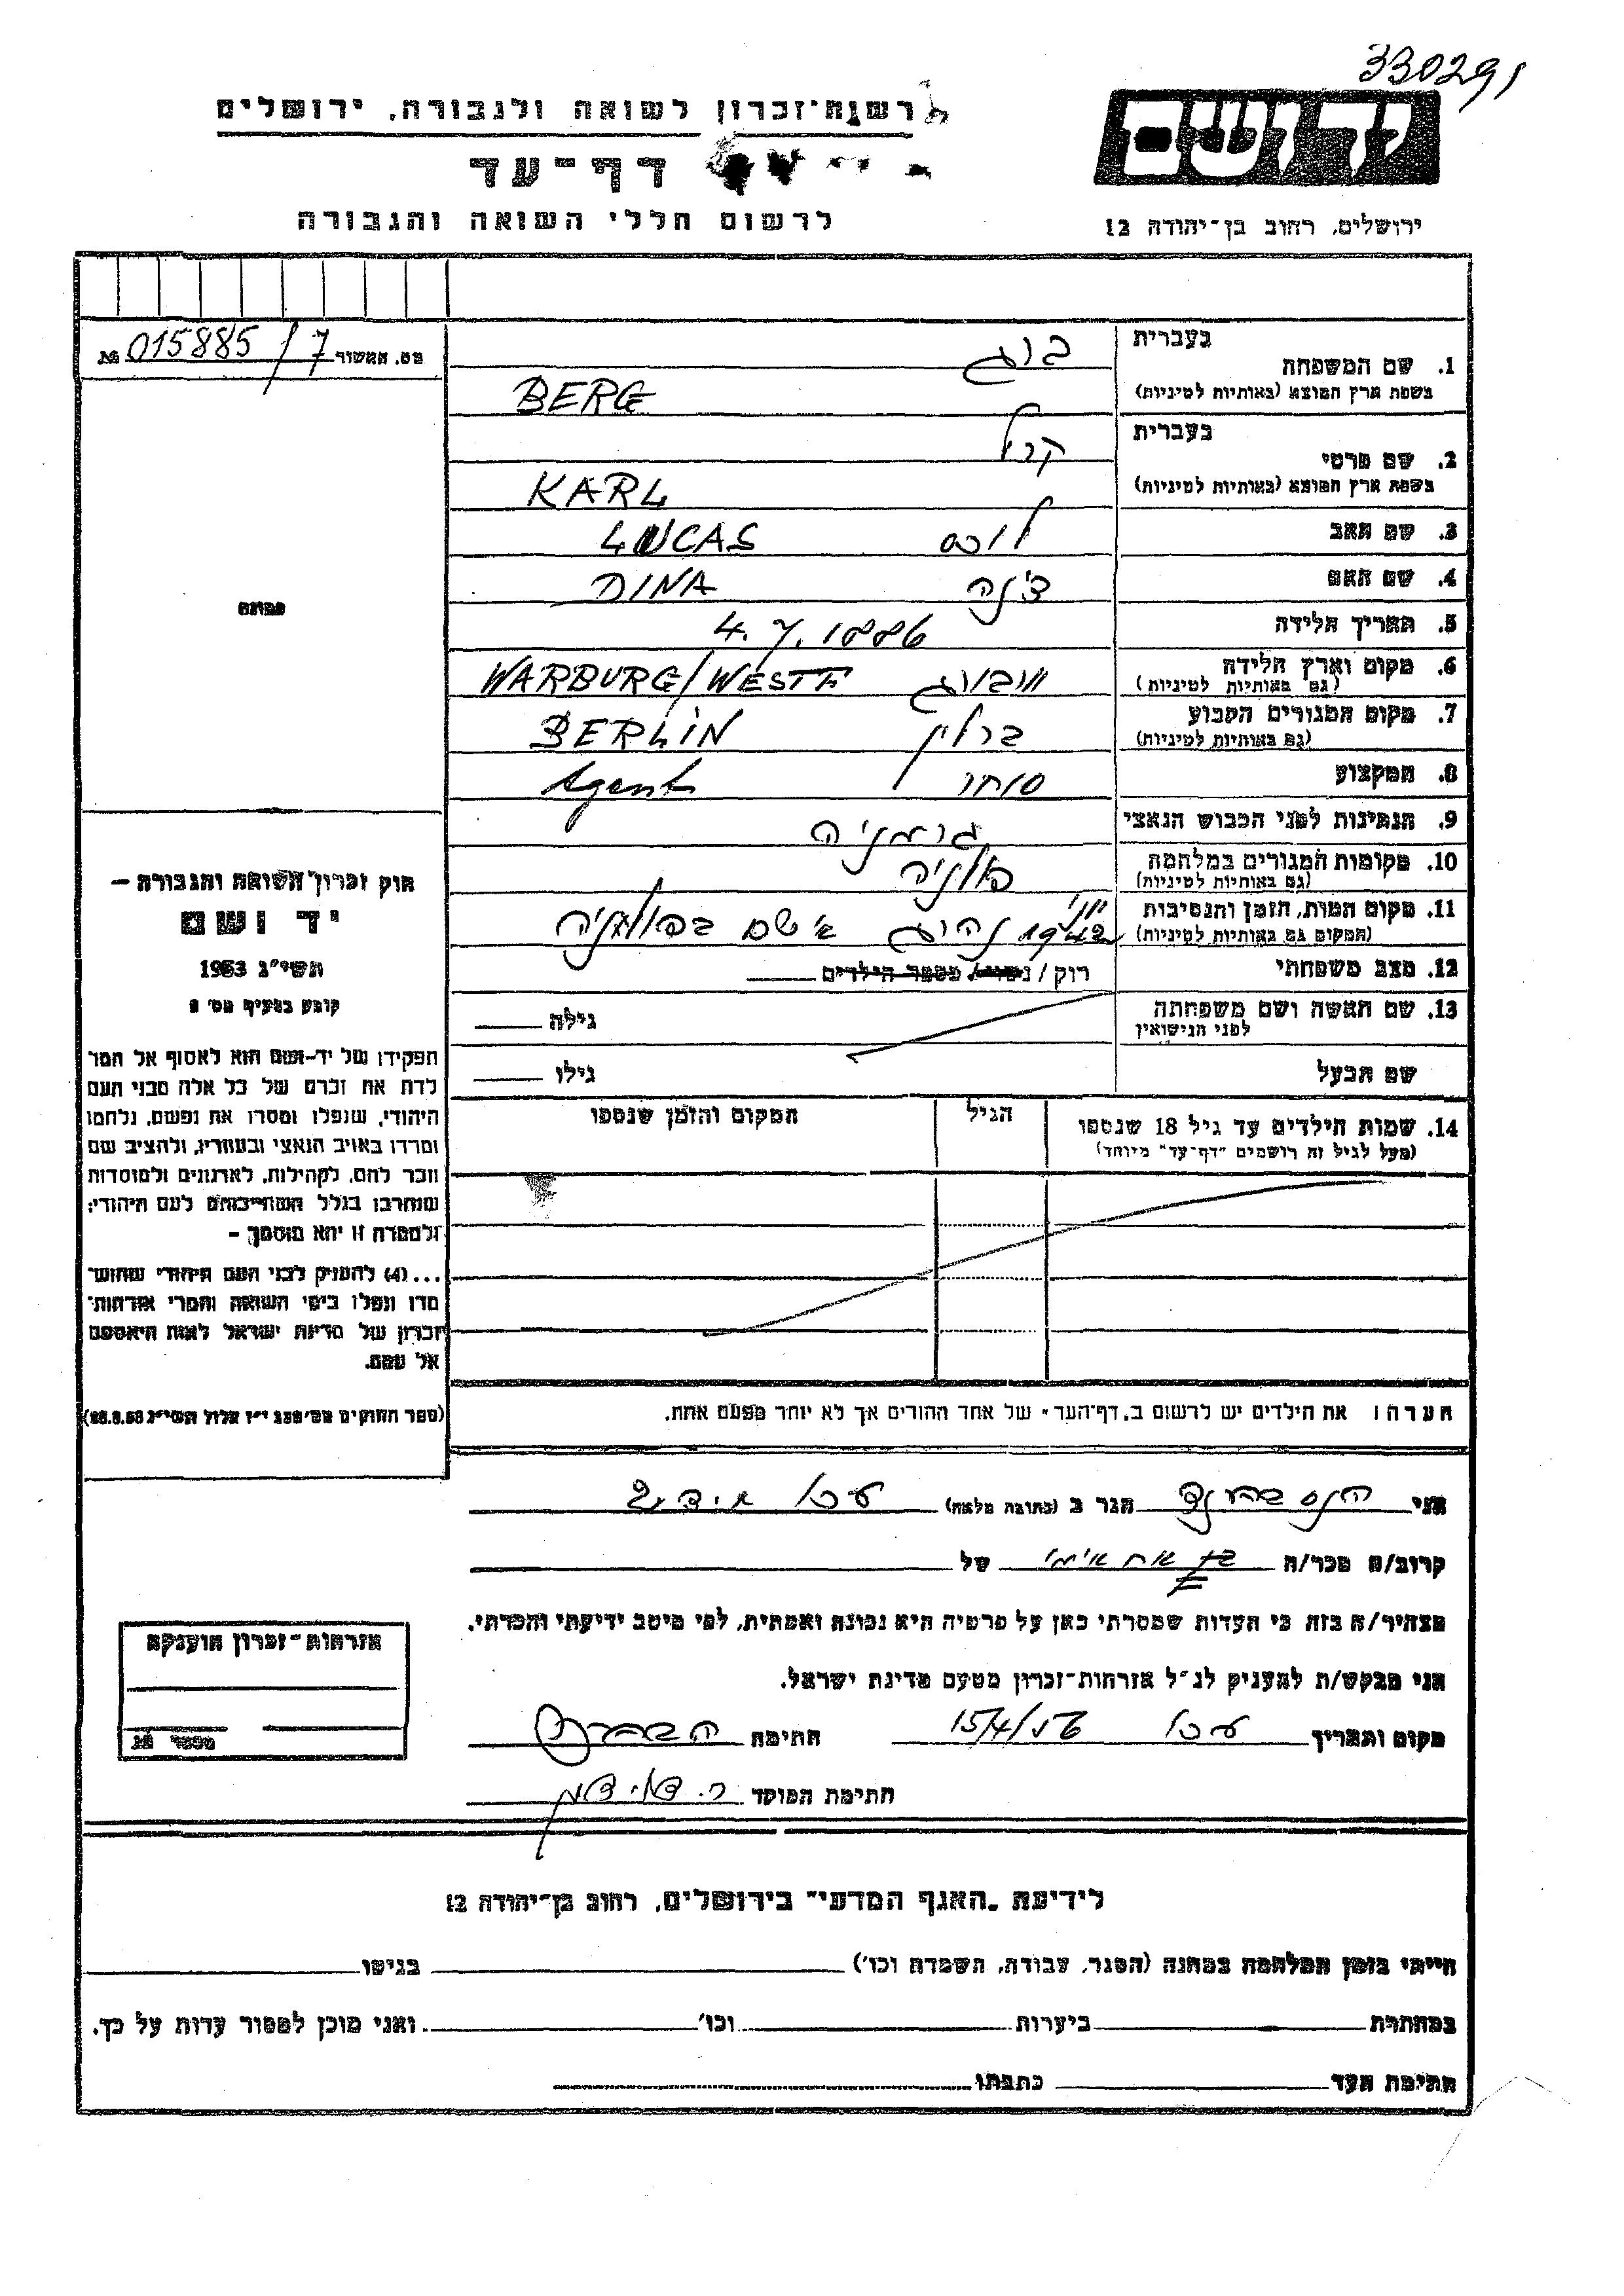 330291
יד ושם
ירושלים, רחוב בן-יהודה 12
רשות-זכרון לשואה ולגבורה, ירושלים
דף-עד
לרשום חללי השואה והגבורה
מס. האשור 015885/7 №
בעברית ברג
1. שם המשפחה
בשפת ארץ המוצא (באותיות לטיניות) BERG
בעברית קרל
2. שם פרטי
בשפת ארץ המוצא (באותיות לטיניות) KARL
3. שם האב לוכס LUCAS
4. שם האם דינה DINA
5. תאריך הלידה 4.7.1886
6. מקום וארץ הלידה ורבורג WARBURG/WESTF
(גם באותיות לטיניות)
7. מקום המגורים הקבוע ברלין BERLIN
(גם באותיות לטיניות)
8. המקצוע סוחר Agent
9. הנתינות לפני הכבוש הנאצי גרמניה
10. מקומות המגורים במלחמה פולניה
(גם באותיות לטיניות)
11. מקום המות, הזמן והנסיבות 1942 נהרג אי שם בפולניה
(המקום גם באותיות לטיניות)
12. מצב משפחתי רוק / נשוי / מספר הילדים
13. שם האשה ושם משפחתה גילה
לפני הנישואין
שם הבעל גילו
14. שמות הילדים עד גיל 18 שנספו הגיל המקום והזמן שנספו
(מעל לגיל זה רושמים "דף-עד" מיוחד)
הערה: את הילדים יש לרשום ב"דף-העד" של אחד ההורים אך לא יותר מפעם אחת.
תמונה
חוק זכרון השואה והגבורה –
יד ושם
תשי"ג 1953
קובע בסעיף מס' 2
תפקידו של יד-ושם הוא לאסוף אל המו־
לדת את זכרם של כל אלה מבני העם
היהודי, שנפלו ומסרו את נפשם, נלחמו
ומרדו באויב הנאצי ובעוזריו, ולהציב שם
וזכר להם, לקהילות, לארגונים ולמוסדות
שנחרבו בגלל השתייכותם לעם היהודי;
ולמטרה זו יהא מוסמך –
...(4) להעניק לבני העם היהודי שהוש־
מדו ונפלו בימי השואה והמרי אזרחות־
זכרון של מדינת ישראל לאות היאספם
אל עמם.
אני הגר ב (כתובת מלאה) עכו
קרוב/ה מכר/ה בן אח אימי של
מצהיר/ה בזה כי העדות שמסרתי כאן על פרטיה היא נכונה ואמתית, לפי מיטב ידיעתי והכרתי.
אני מבקש/ת להעניק לנ"ל אזרחות-זכרון מטעם מדינת ישראל.
מקום ותאריך עכו 15/4/56 חתימה
חתימת הפוקד
אזרחות-זכרון הוענקה
מספר №
לידיעת "האגף המדעי" בירושלים, רחוב בן-יהודה 12
הייתי בזמן המלחמה במחנה (הסגר, עבודה, השמדה וכו') בגיטו
במחתרת ביערות וכו' ואני מוכן למסור עדות על כך.
חתימת העד כתבתו